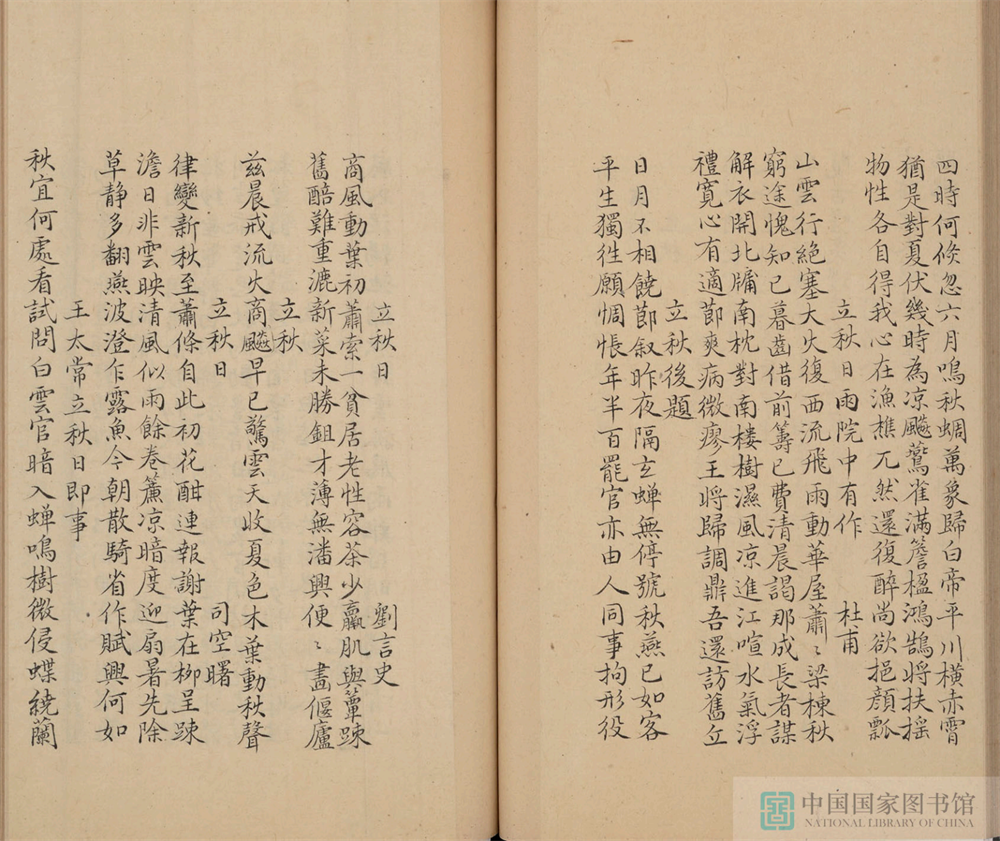 四時何倏忽六月鳴秋蜩萬象歸白帝平川橫赤霄
猶是對夏伏幾時為凉飈鷰雀滿簷楹鴻鵠將扶揺
物性各自得我心在漁樵兀然還復醉尚欲挹顔瓢
立秋日雨院中有作 杜甫
山雲行絶塞大火復西流飛雨動華屋蕭〻梁棟秋
窮途愧知己暮齒借前籌已費清晨謁那成長者謀
解衣開北牖南枕對南楼樹濕風凉進江喧水氣浮
禮寛心有適節爽病微瘳王將歸調鼎吾還訪舊丘
立秋後題
日月不相饒節叙昨夜隔玄蟬無停號秋燕已如客
平生獨徃願惆悵年半百罷官亦由人何事拘形役
立秋日 劉言史
商風動葉初蕭索一貧居老性容茶少羸肌與簟踈
舊醅難重漉新菜未勝鉏才薄無潘興便〻畫偃廬
立秋
兹晨戒流火商飈早已驚雲天收夏色木葉動秋聲
立秋日 司空曙
律變新秋至蕭條自此初花酣連報謝葉在柳呈踈
澹日非雲映清風似雨餘卷簾凉暗度迎扇暑先除
草静多翻燕波澄乍露魚今朝散騎省作賦興何如
王太常立秋日即事
秋宜何處看試問白雲官暗入蟬鳴樹微侵蝶繞蘭
中国国家图书馆
NATIONAL LIBRARY OF CHINA